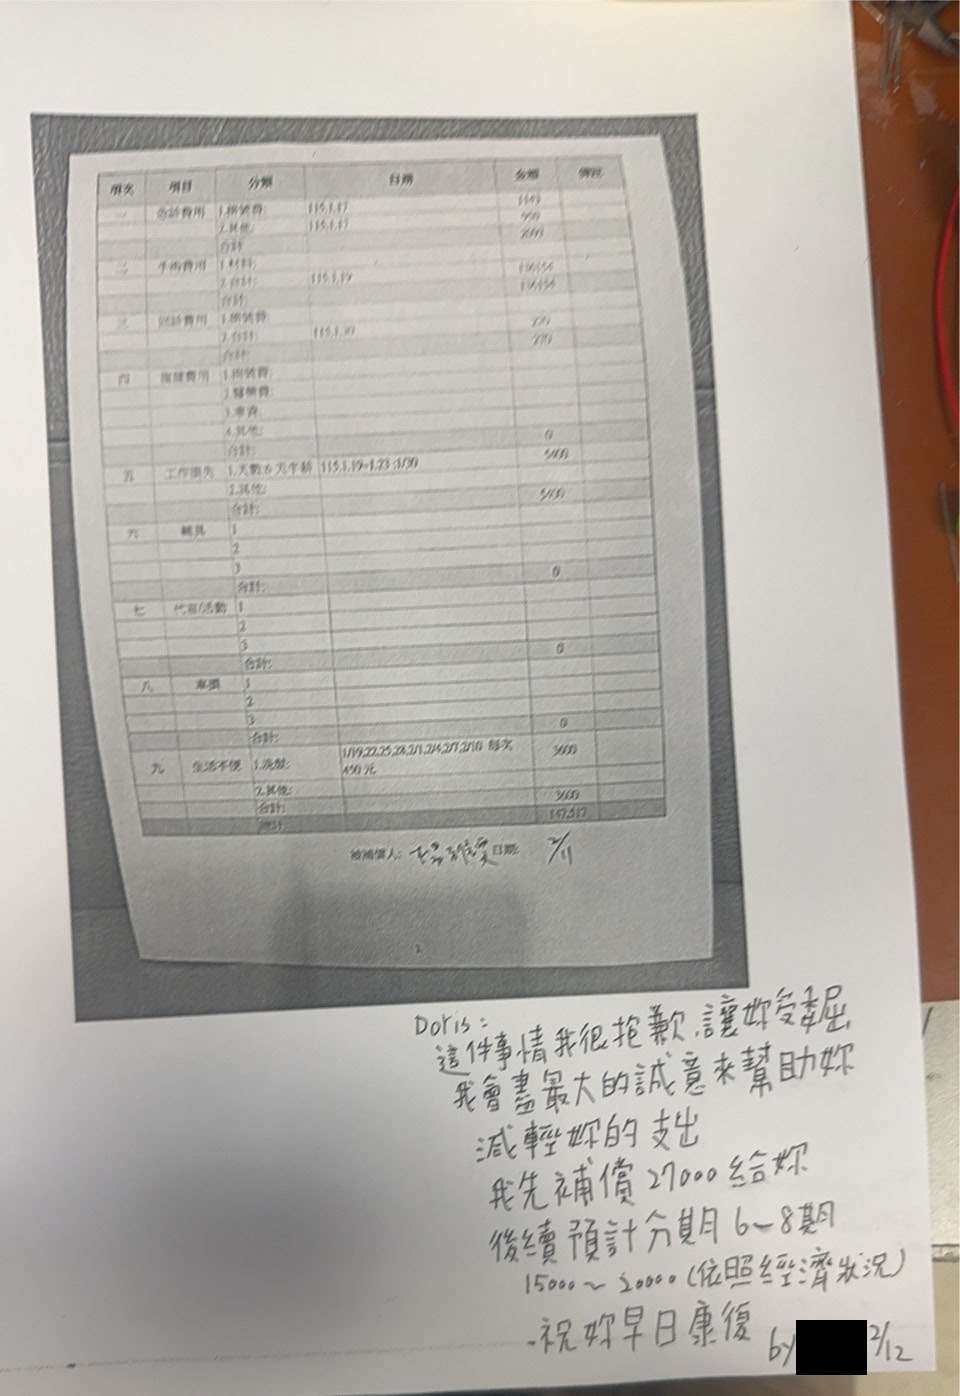 項次 項目 分類 日期 金額
一 急診費用 1.掛號費: 115.1.17
2.其他: 115.1.17
合計
二 手術費用 1.材料:
2.合計: 115.1.19
合計:
三 回診費用 1.掛號費
2.合計: 115.1.30
合計:
四 復健費用 1.掛號費:
2.醫藥費:
3.車資:
4.其他:
合計: 0
五 工作損失 1.天數&天平薪 115.1.19~1.23 ;1/30
2.其他:
合計:
六 輔具 1
2
3
合計: 0
七 1
2
3
合計: 0
八 車損 1
2
3
合計: 0
九 生活不便 1.洗髮: 1/19,22,25,28,2/1,2/4,2/7,2/10 每次 3600
450元
2.其他:
合計: 3600
總計 147,517
被補償人: 日期: 2/11
1
Doris:
這件事情我很抱歉,讓妳受委屈
我會盡最大的誠意來幫助妳
減輕妳的支出
我先補償27000給妳
後續預計分期月6~8期
15000~20000(依照經濟狀況)
祝妳早日康復
by 2/12